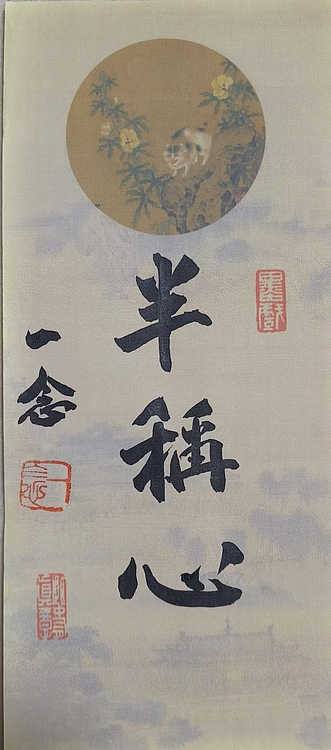 半稱心
一念